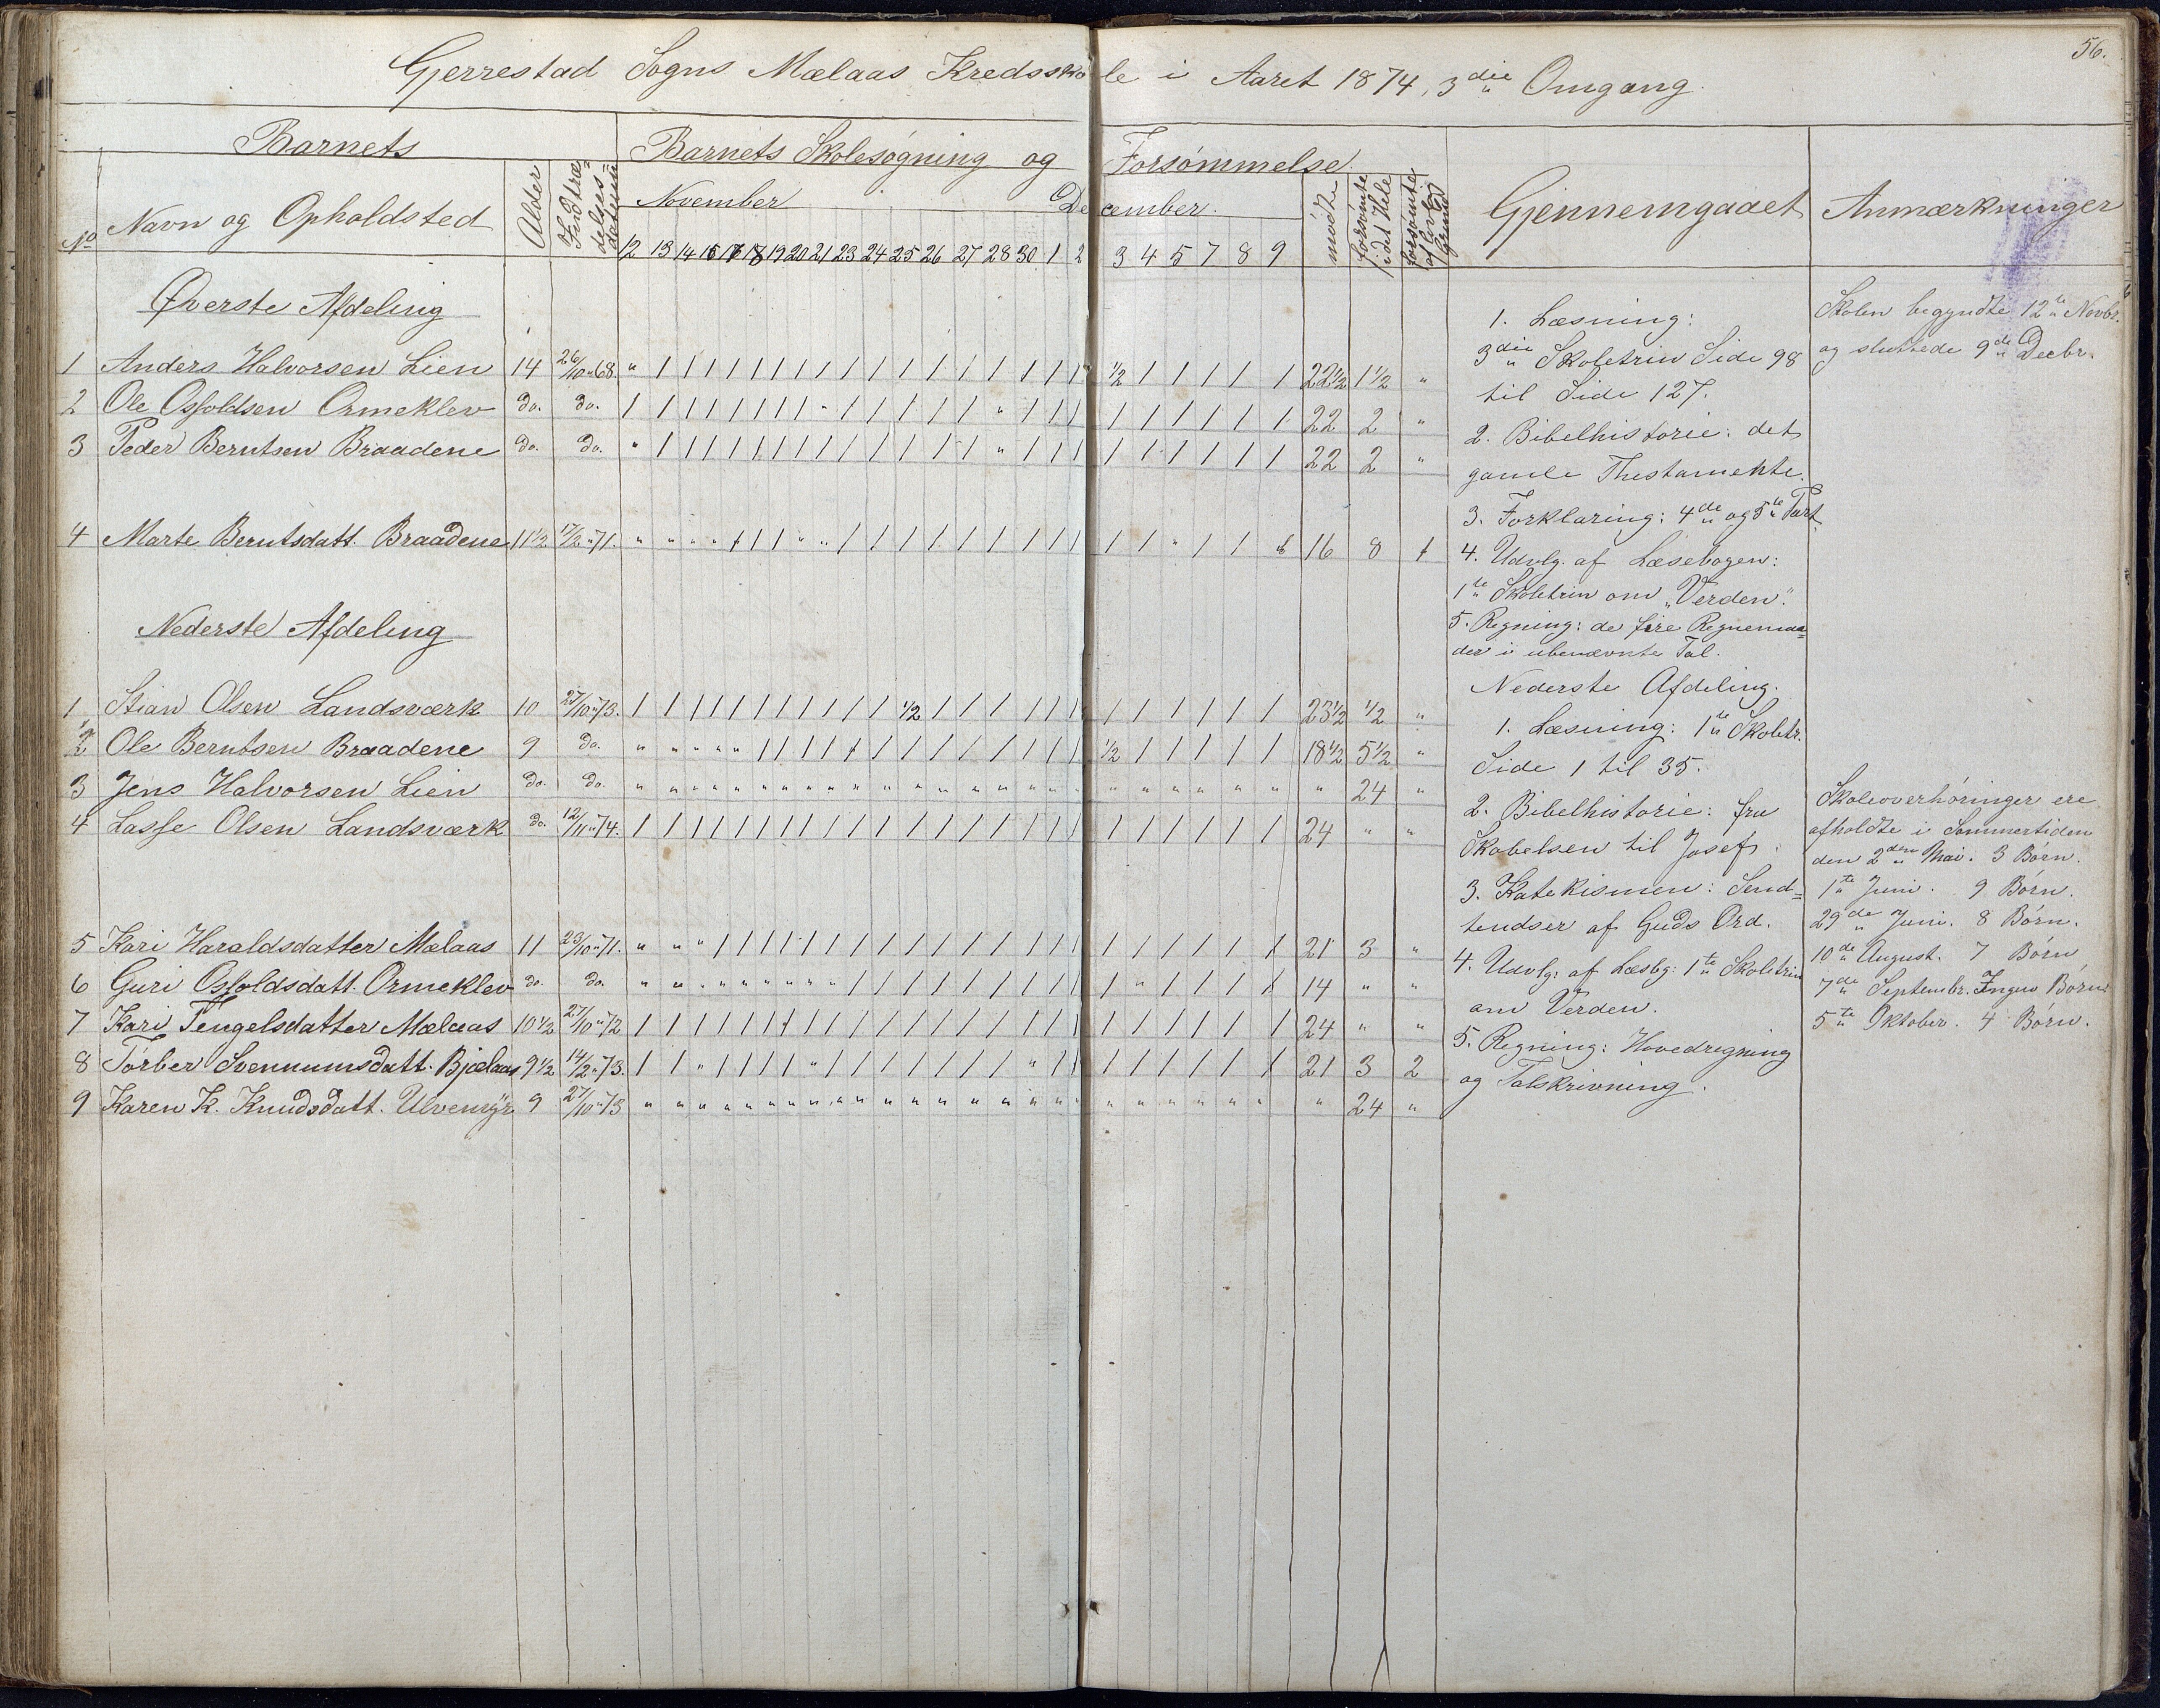 56.
Gjerrestad Sogns Mælaas Kredsskole i Aaret 1874, 3die Omgang.
Barnets
Barnets Skolesøgning og Forsømmelse
No
Navn og Opholdsted
Alder
Indtræ=
delses=
datum
November
December.
12 13 14 16 17 18 19 20 21 23 24 25 26 27 28 30 1 2 3 4 5 7 8 9
mødte
forsømte
i det Hele
forsømte
af lovlig
Grund
Gjennemgaaet
Anmærkninger
Øverste Afdeling
1 Anders Halvorsen Lien 14 26/10 " 68. " / / / / / / / / / / / / / / / / / 1/2 / / / / / 22 1/2 1 1/2 "
2 Ole Osfoldsen Ormeklev do. do. / / / / / / / / " / / / / / " / / / / / / / / / 22 2 "
3 Peder Berntsen Braadene do. do. " / / / / / / / / / / / / / " / / / / / / / / / 22 2 "
4 Marte Berntsdatt. Braadene 11 1/2 17/2 " 71. " " " " / / / " " / / / / / / / / / / / " / / 16 8 1
Nederste Afdeling
1 Stian Olsen Landsværk 10 27/10 " 73. / / / / / / / / / / / 1/2 / / / / / / / / / / / / 23 1/2 1/2 "
2 Ole Berntsen Braadene 9 do. " " " " " / / / / / / / / / / / / / 1/2 / / / / / 18 1/2 5 1/2 "
3 Jens Halvorsen Lien do. do. " " " " " " " " " " " " " " " " " " " " " " " " " 24 "
4 Lasse Olsen Landsværk do. 12/11 " 74. / / / / / / / / / / / / / / / / / / / / / / / / 24 " "
5 Kari Haraldsdatter Mælaas 11 23/10 " 71. " " " / / / / / / / / / / / / / / / / / / / / / 21 3 "
6 Guri Osfoldsdatt. Ormeklev do. do. " " " " " " " " " / / / / / / / / / / " / / / / 14 " "
7 Kari Tengelsdatter Mælaas 10 1/2 27/10 " 72 / / / / / / / / / / / / / / / / / / / / / / / / 24 " "
8 Torber Svennumsdatt. Bjælaas 9 1/2 14/2 " 73. / / " / / / / " / / / / / / / " / / / / / / / / 21 3 2
9 Karen K. Knudsdatt. Ulvemyr 9 27/10 " 73 " " " " " " " " " " " " " " " " " " " " " " " " " 24 "
1. Læsning:
3die Skoletrin Side 98
til Side 127.
2. Bibelhistorie: det
gamle Thestamente.
3. Forklaring: 4de og 5te Part.
4. Udvlg. af Læsebogen:
1te Skoletrin om „Verden".
5. Regning: de fire Regnemaa=
der i ubenævnte Tal.
Nederste Afdeling.
1. Læsning: 1te Skoletr.
Side 1 til 35.
2. Bibelhistorie: fra
Skabelsen til Josef.
3. Katekismen: Send=
tendser af Guds Ord.
4. Udvlg: af Læsbg: 1te Skoletrin
om Verden.
5. Regning: Hovedregning
og Talskrivning.
Skolen begyndte 12te Novbr.
og sluttede 9de Decbr.
Skoleoverhøringer ere
afholdte i Sommertiden
den 2den Mai. 3 Børn.
1te Juni. 9 Børn.
29de Juni. 8 Børn.
10de August. 7 Børn
7de Septembr. Ingen Børn.
5te Oktober. 4 Børn.